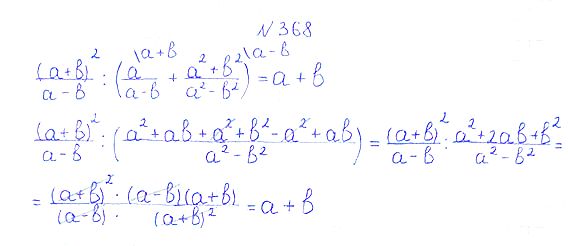 N 368
(a+b)²/(a-b) : (a/(a-b) \a+b + (a²+b²)/(a²-b²) \a-b) = a+b
(a+b)²/(a-b) : ((a²+ab+a²+b²-a²+ab)/(a²-b²)) = (a+b)²/(a-b) : (a²+2ab+b²)/(a²-b²) =
= ((a+b)² · (a-b)(a+b))/((a-b) · (a+b)²) = a+b